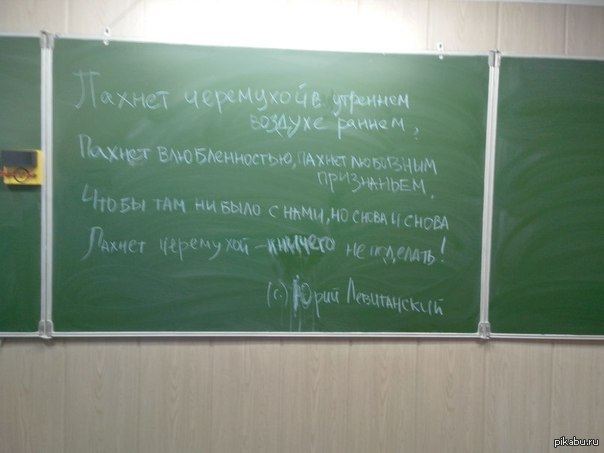 Пахнет черемухой в утреннем
воздухе раннем,
Пахнет влюбленностью, пахнет любовным
признаньем.
Чтобы там ни было с нами, но снова и снова
Пахнет черемухой - и ничего не поделать!
(с.) Юрий Левитанский
pikabu.ru